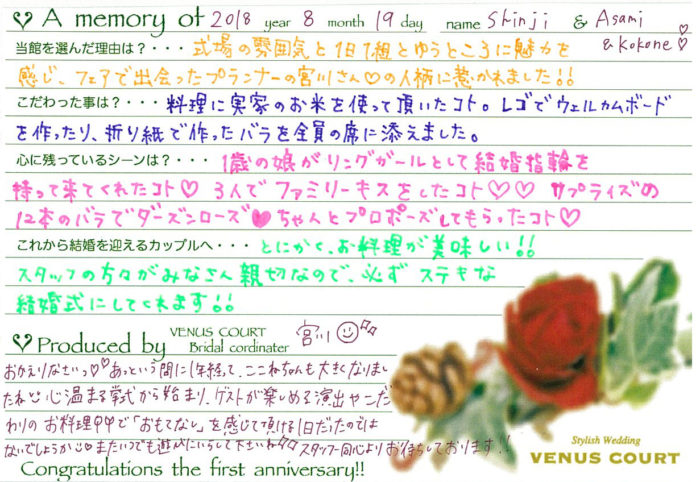 A memory of 2018 year 8 month 19 day name Shinji & Asami
& Kokone♡
当館を選んだ理由は？・・・ 式場の雰囲気と1日1組とゆうところに魅力を
感じ、フェアで出会ったプランナーの宮川さん♡の人柄に惹かれました!!
こだわった事は？・・・ 料理に実家のお米を使って頂いたコト。レゴでウェルカムボード
を作ったり、折り紙で作ったバラを全員の席に添えました。
心に残っているシーンは？・・・ 1歳の娘がリングガールとして結婚指輪を
持って来てくれたコト♡ 3人でファミリーキスをしたコト♡♡ サプライズの
12本のバラでダーズンローズ♥ちゃんとプロポーズしてもらったコト♡
これから結婚を迎えるカップルへ・・・ とにかく、お料理が美味しい!!
スタッフの方々がみなさん親切なので、必ず ステキな
結婚式にしてくれます!!
Produced by VENUS COURT Bridal cordinater 宮川
おかえりなさいっ♡ あっという間に1年経って、ここねちゃんも大きくなりまし
たね 心温まる挙式から始まり、ゲストが楽しめる演出やこだ
わりのお料理 で「おもてなし」を感じて頂ける1日だったのでは
ないでしょうか またいつでも遊びにいらして下さいね スタッフ一同心よりお待ちしております!!
Congratulations the first anniversary!!
Stylish Wedding
VENUS COURT